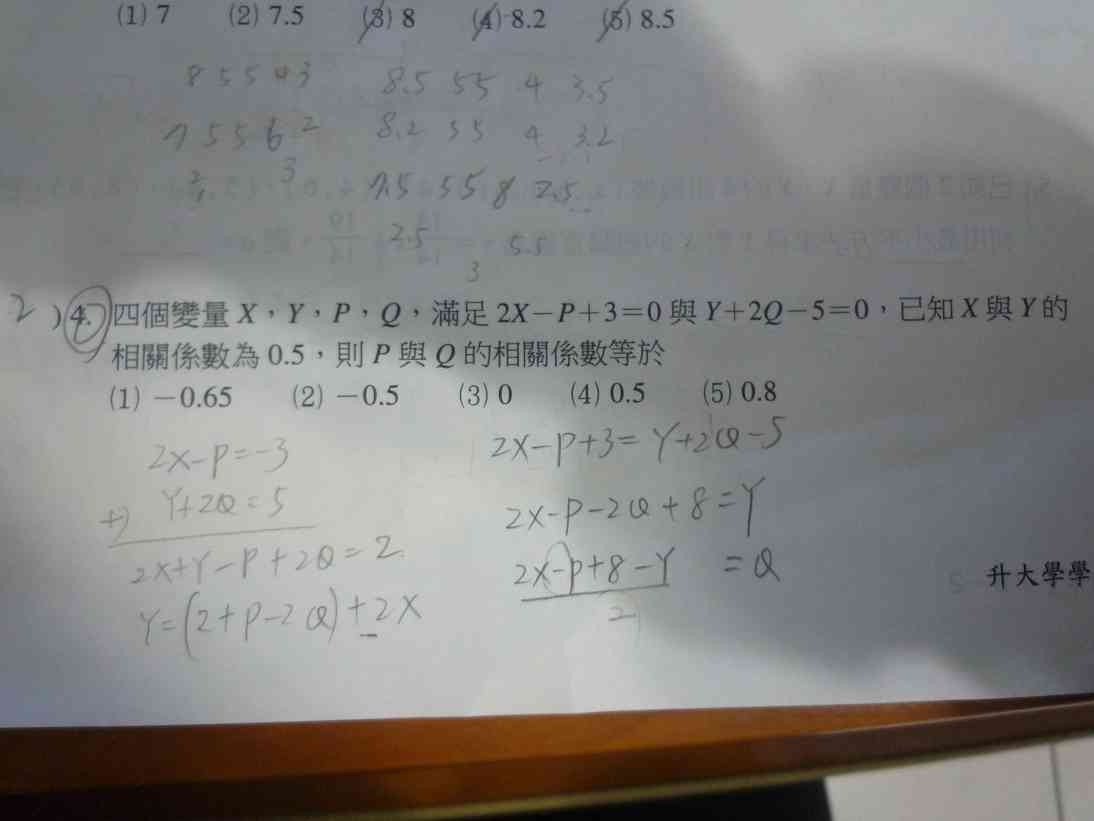 (1) 7 (2) 7.5 (3) 8 (4) 8.2 (5) 8.5
8 5 5 4 3 8.5 5 5 4 3.5
7 5 5 6 2 8.2 5 5 4 3.2
3 7.5 5 5 8 2.5
2.5 5.5
3
2 ) 4. 四個變量 X，Y，P，Q，滿足 2X－P＋3＝0 與 Y＋2Q－5＝0，已知 X 與 Y 的
相關係數為 0.5，則 P 與 Q 的相關係數等於
(1) －0.65 (2) －0.5 (3) 0 (4) 0.5 (5) 0.8
2X-P=-3 2X-P+3=Y+2Q-5
+) Y+2Q=5 2X-P-2Q+8=Y
2X+Y-P+2Q=2 2X-P+8-Y =Q
Y=(2+P-2Q)+2X 2
升大學學